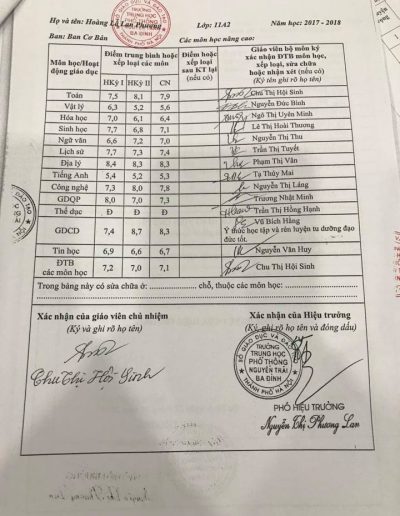 Họ và tên: Hoàng Lê Lan Phương Lớp: 11A2 Năm học: 2017 - 2018
Ban: Ban Cơ Bản Các môn học nâng cao:
Môn học/Hoạt động giáo dục
Điểm trung bình hoặc xếp loại các môn
HKỳ I HKỳ II CN
Điểm hoặc xếp loại sau KT lại (nếu có)
Giáo viên bộ môn ký xác nhận ĐTB môn học, xếp loại, sửa chữa hoặc nhận xét (nếu có)
(Ký tên ghi rõ họ tên)
Toán 7,5 8,1 7,9 Chu Thị Hội Sinh
Vật lý 6,3 5,2 5,6 Nguyễn Đức Bình
Hóa học 7,0 6,1 6,4 Ngô Thị Uyên Minh
Sinh học 7,7 6,8 7,1 Lê Thị Hoài Thương
Ngữ văn 6,6 7,2 7,0 Nguyễn Thị Thu
Lịch sử 7,7 7,3 7,4 Trần Thị Tuyết
Địa lý 8,4 8,3 8,3 Phạm Thị Vân
Tiếng Anh 5,4 5,2 5,3 Tạ Thúy Mai
Công nghệ 7,3 8,0 7,8 Nguyễn Thị Láng
GDQP 8,0 7,0 7,3 Trương Nhật Minh
Thể dục Đ Đ Đ Trần Thị Hồng Hạnh
GDCD 7,4 8,7 8,3 Vũ Bích Hằng
Ý thức học tập và rèn luyện tu dưỡng đạo đức tốt.
Tin học 6,9 6,6 6,7 Nguyễn Văn Huy
ĐTB các môn học 7,2 7,0 7,1 Chu Thị Hội Sinh
Trong bảng này có sửa chữa ở: chỗ, thuộc các môn học:
Xác nhận của giáo viên chủ nhiệm
(Ký và ghi rõ họ tên)
Chu Thị Hội Sinh
Xác nhận của Hiệu trưởng
(Ký, ghi rõ họ tên và đóng dấu)
SỞ GIÁO DỤC VÀ ĐÀO TẠO
TRƯỜNG
TRUNG HỌC
PHỔ THÔNG
NGUYỄN TRÃI
BA ĐÌNH
THÀNH PHỐ HÀ NỘI
PHÓ HIỆU TRƯỞNG
Nguyễn Thị Phương Lan